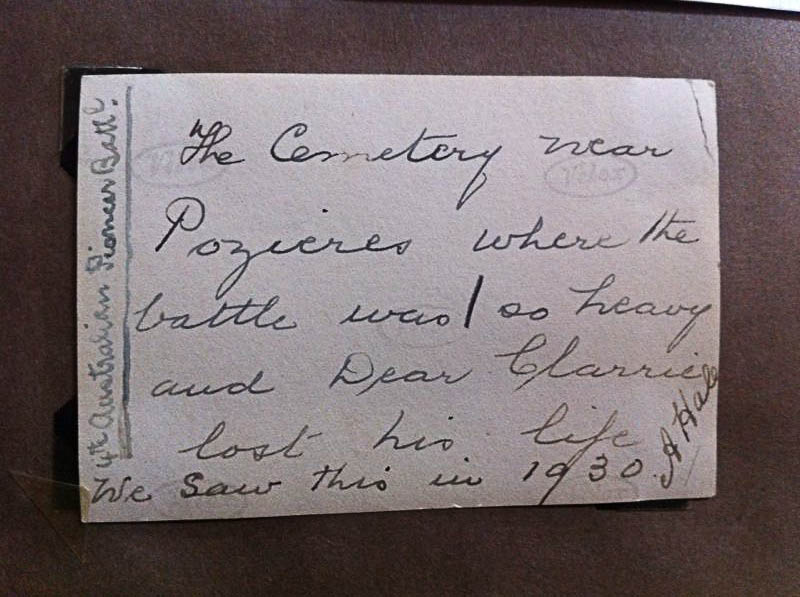 The Cemetery near
Pozieres where the
battle was so heavy
and Dear Clarrie
lost his life
We saw this in 1930.
A Hale
4th Australian Pioneer Battl.
Velox